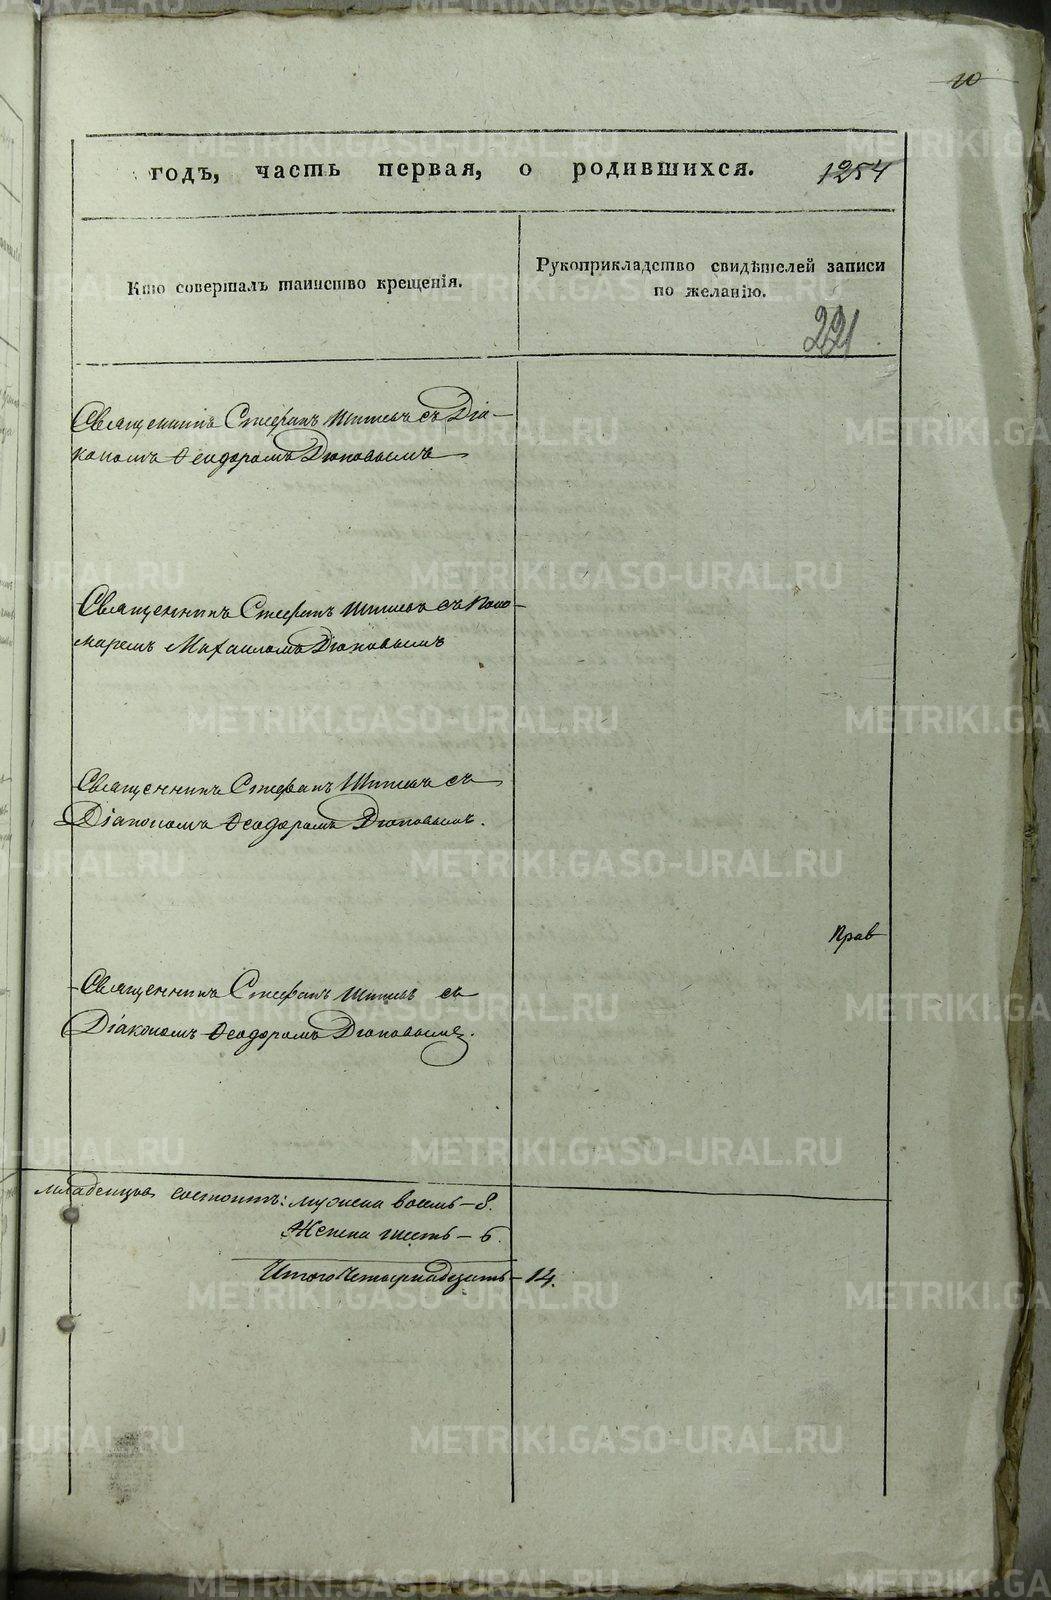 10
годъ, часть первая, о родившихся. 1254
Кто совершалъ таинство крещенія.
Рукоприкладство свидѣтелей записи
по желанію.
221
Священникъ Стефанъ съ Діа-
кономъ Ѳеодоромъ Дюповымъ
Священникъ Стефанъ съ Поно-
маремъ Михаиломъ Дюповымъ
Священникъ Стефанъ съ
Діакономъ Ѳеодоромъ Дюповымъ.
Прав
Священникъ Стефанъ съ
Діакономъ Ѳеодоромъ Дюповымъ.
Младенцовъ состоитъ: мужска восемь – 8.
Женска шесть – 6.
Итого четырнадцать – 14.
METRIKI.GASO-URAL.RU